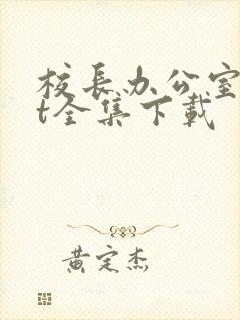 校长办公室
t全集下载
黄定杰